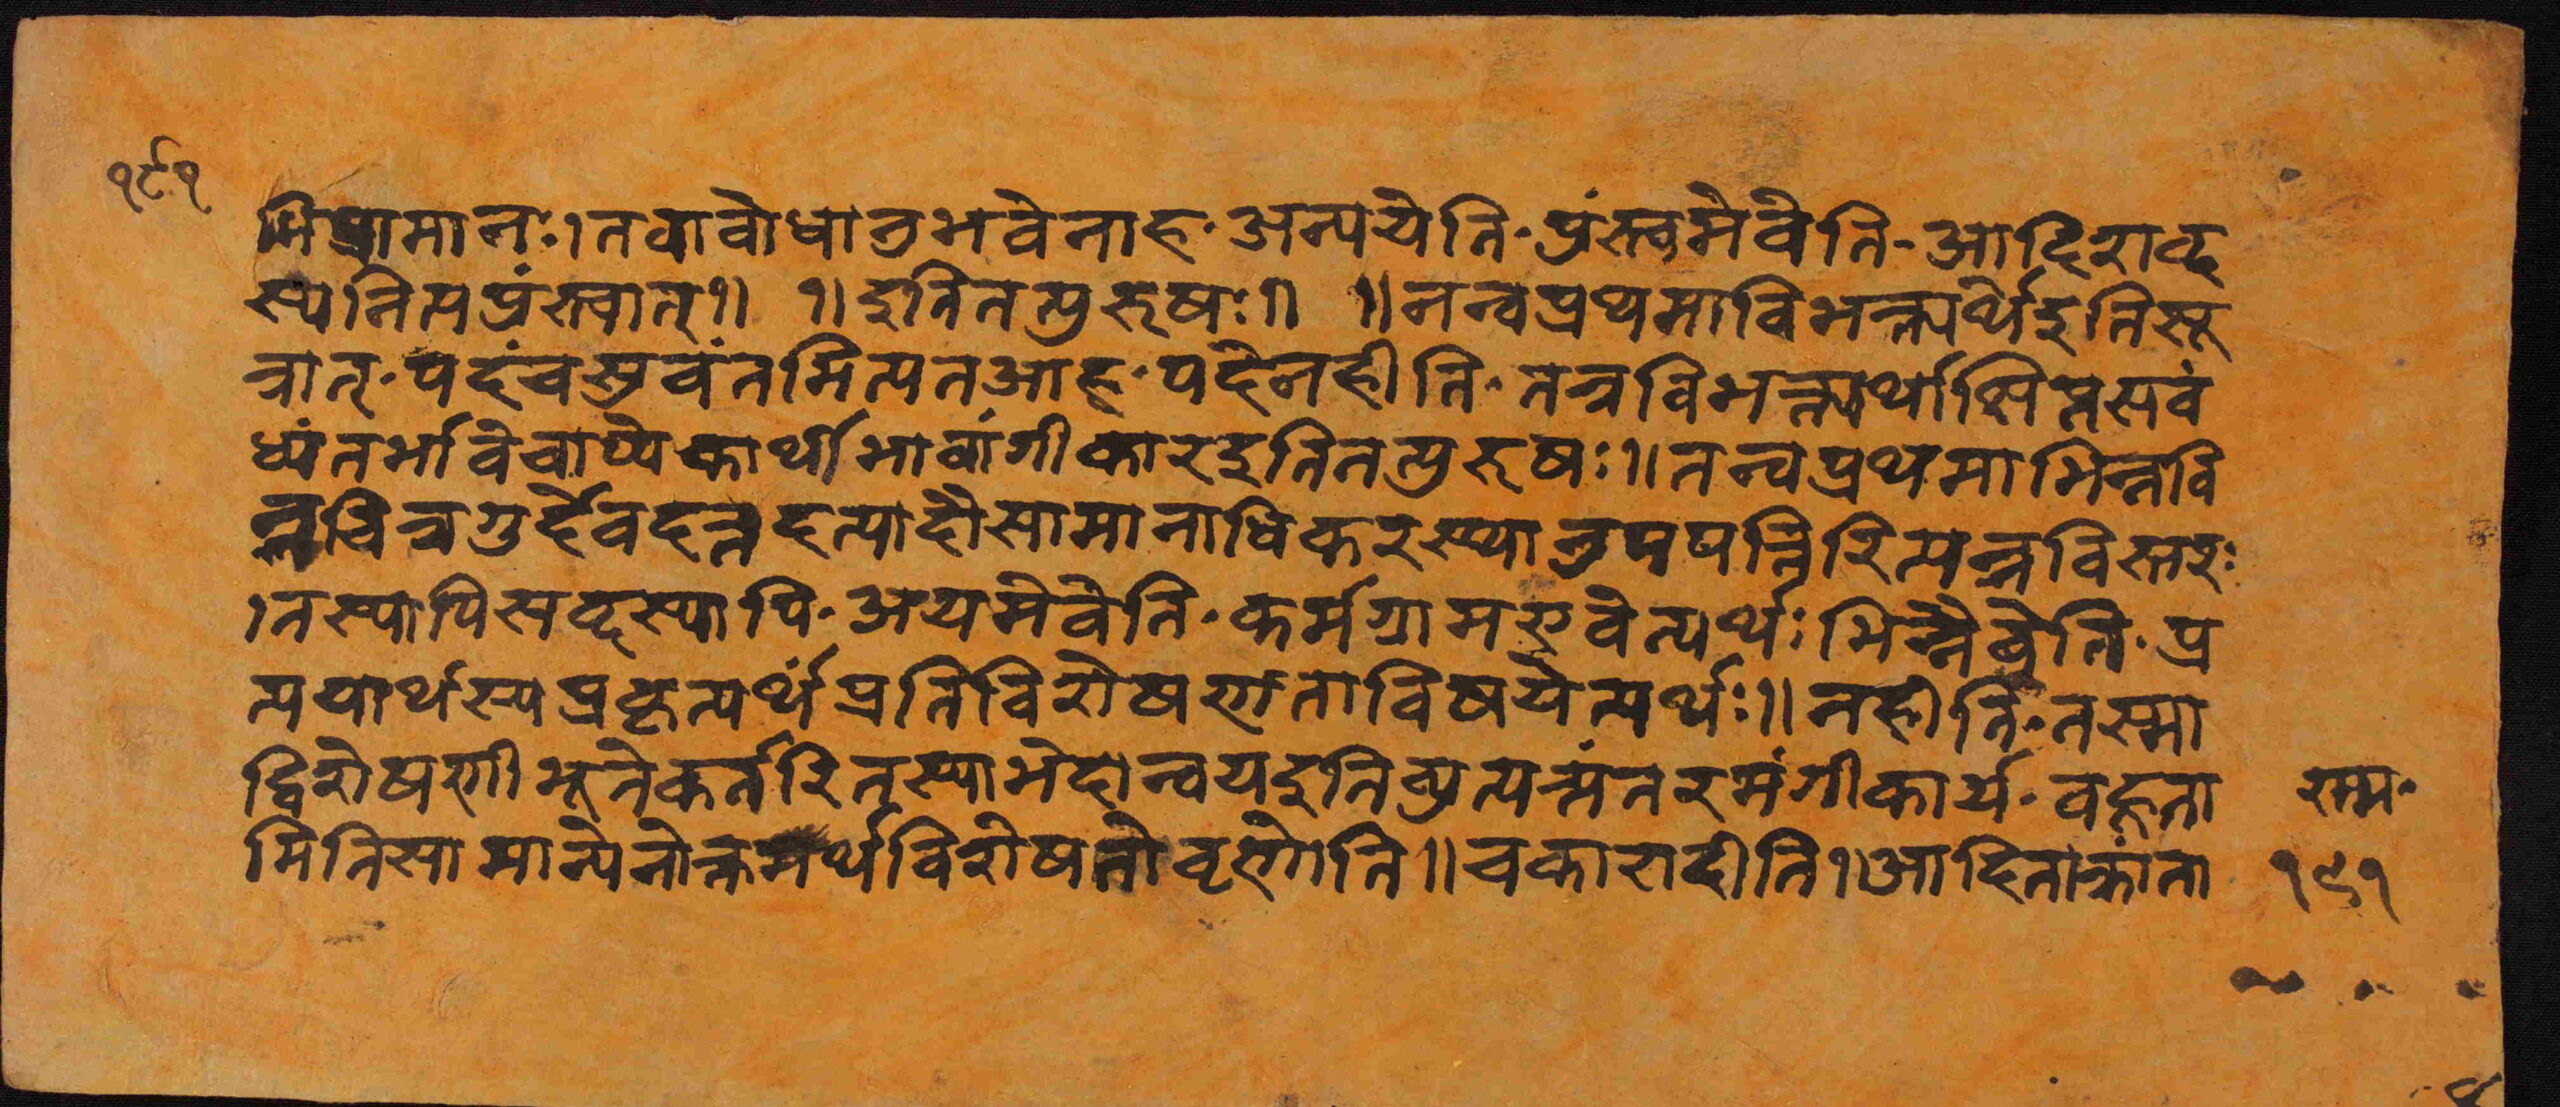 १९१
मिषामानः। तवावोधानुभवेनाह· अन्पयेति· पुंस्त्वमेवेति· आदिशब्द
स्यनित्यपुंस्त्वात्॥ ॥इतितत्पुरूषः॥ ॥नन्वप्रथमाविभक्त्यर्थेइतिसू
त्रात्· पदंचसुवंतमित्यतआह· पदेनहीति· तत्रविभक्त्यर्थाक्षिप्तसवं
ध्यंतर्भावेचाप्येकार्थीभावांगीकारइतितत्पुरूषः॥ नन्वप्रथमाभिन्नवि
चित्रगुर्देवदत्तइत्यादौसामानाधिकरण्यानुपपत्तिरित्यत्रविस्तरः
।तस्यापिसब्दस्यापि· अयमेवेति· कर्मग्रामरुवेत्यर्थः भिन्नैवेति· प्र
त्ययार्थस्यप्रकृत्यर्थंप्रतिविशेषणताविषयेत्यर्थः॥ नहीति· तस्मा
द्विशेषणीभूतेकर्तरितस्याभेदान्वयइतिव्युत्पत्त्यंतरमंगीकार्य· वह्रूना
मितिसामान्येनोक्तमर्थविशेषतोवृणोति॥ चकारादीति। आदिताक्तांता
राम·
१९१